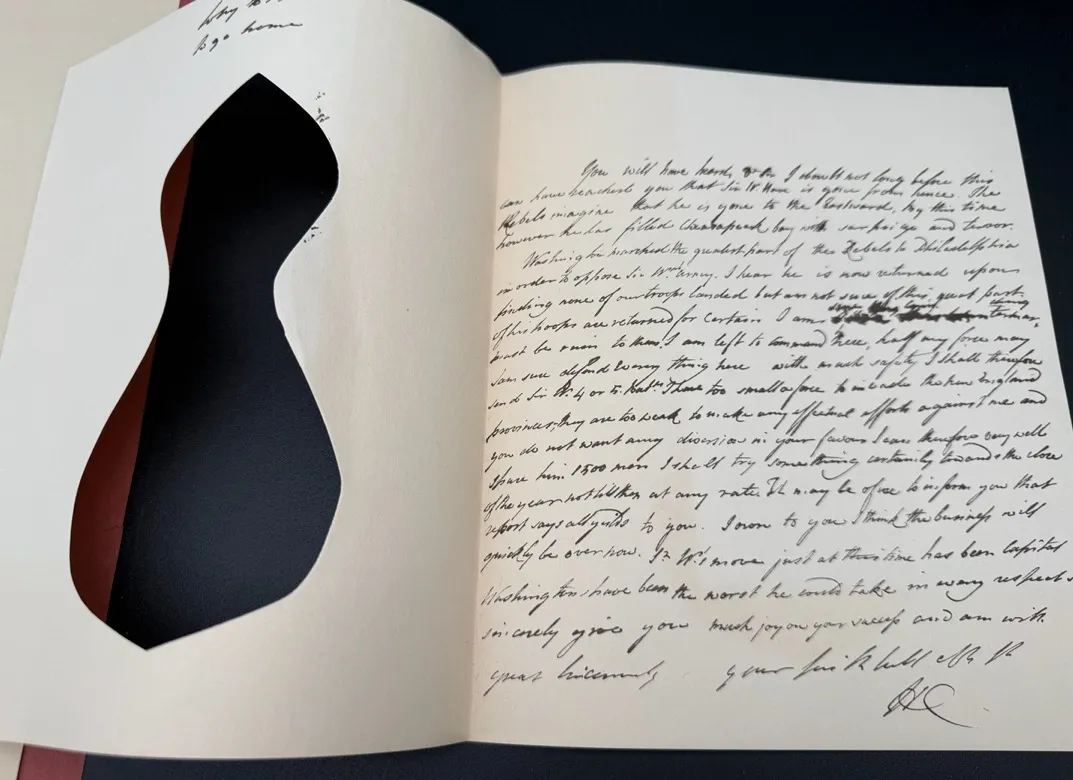 why
to go home
You will have heard, I doubt not long before this
can have reached you that Sir W. Howe is gone from hence. The
Rebels imagine that he is gone to the Eastward, by this time
however he has filled Chesapeak bay with surprize and terror.
Washington marched the greatest part of the Rebels to Philadelphia
in order to oppose Sir Wms. army. I hear he is now returned upon
finding none of our troops landed but am not sure of this, great part
of his troops are returned for certain I am
must be ruin to them. I am left to command here, half my force may
I am sure defend every thing here with much safety I shall therefore
send Sir W. 4 or 5 Batns. I have too small a force to invade the New England
provinces, they are too weak to make any effectual efforts against me and
you do not want any diversion in your favour I can therefore very well
spare him 1500 men I shall try something certainly towards the close
of the year not till then at any rate. It may be of use to inform you that
report says all yields to you. I own to you I think the business will
quickly be over now. Sr. W's move just at this time has been Capital
Washingtons have been the worst he could take in every respect
sincerely give you much joy on your success and am with
great sincerity your
HC